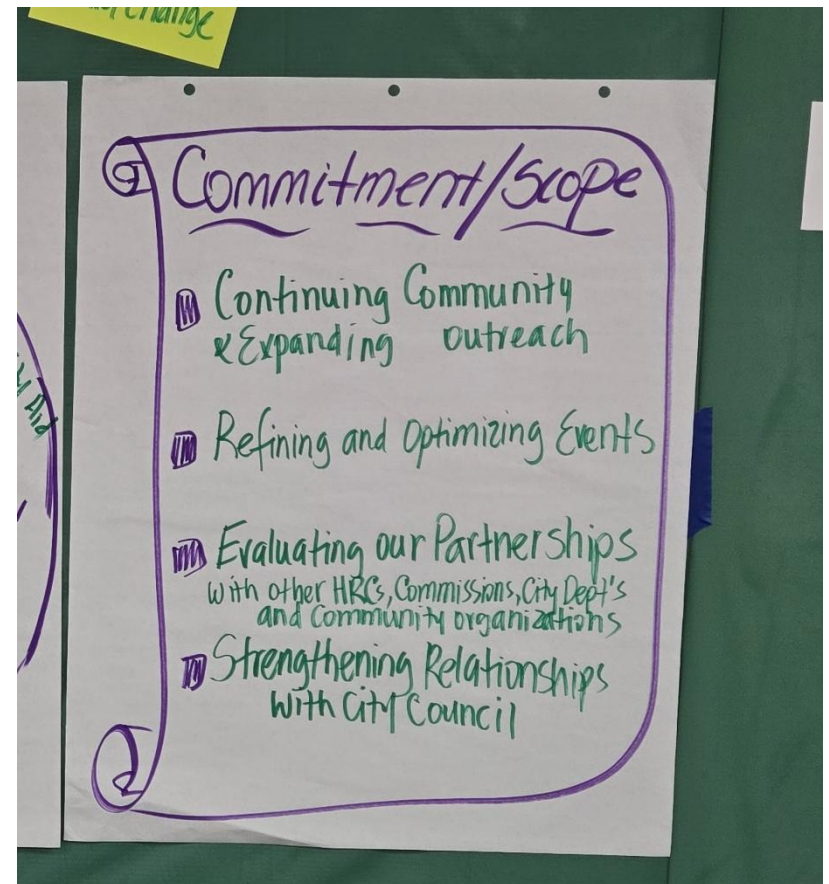 Change
Aid
Commitment/Scope
Continuing Community
& Expanding outreach
Refining and Optimizing Events
Evaluating our Partnerships
with other HRCs, Commissions, City Dept's
and Community organizations
Strengthening Relationships
with City Council